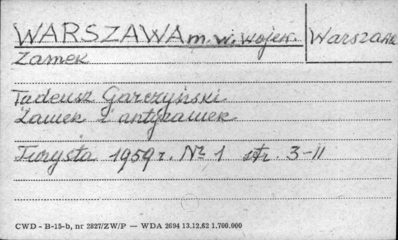 WARSZAWA m. w. wojew. Warszawa
Zamek
Tadeusz Garczyński
Zamek i antyzamek
Turysta 1959 r. Nr 1 str. 3-11
CWD - B-15-b, nr 2827/ZW/P — WDA 2694 13.12.62 1.700.000